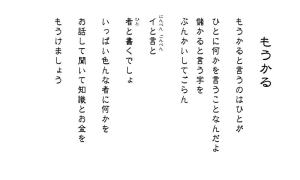 もうかる
もうかると言うのはひとが
ひとに何かを言うことなんだよ
儲かると言う字を
ぶんかいしてごらん
イと言と
者と書くでしょ
いっぱい色んな者に何かを
お話して聞いて知識とお金を
もうけましょう